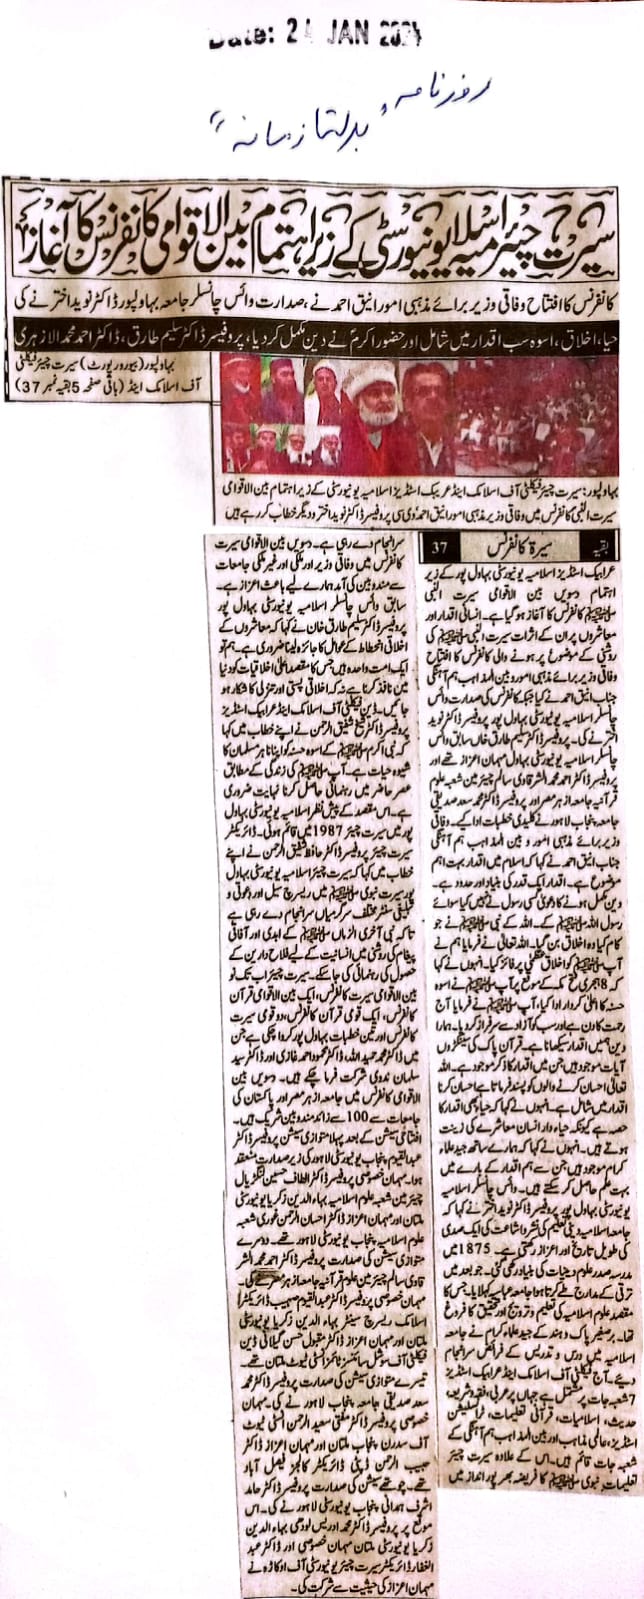 Date: 24 JAN 2024
روزنامہ "بدلتا زمانہ"
سیرت چیئر اسلامیہ یونیورسٹی کے زیر اہتمام بین الاقوامی کانفرنس کا آغاز
کانفرنس کا افتتاح وفاقی وزیر برائے مذہبی امور انیق احمد نے، صدارت وائس چانسلر جامعہ بہاولپور ڈاکٹر نوید اختر نے کی
حیا، اخلاق، اسوہ سب اقدار میں شامل اور حضور اکرمؐ نے دین مکمل کر دیا، پروفیسر ڈاکٹر سلیم طارق، ڈاکٹر احمد محمد الازہری
بہاولپور (بیورو رپورٹ) سیرت چیئر فیکلٹی
آف اسلامک اینڈ (باقی صفحہ 5 بقیہ نمبر 37)
بہاولپور: سیرت چیئر فیکلٹی آف اسلامک اینڈ عریبک اسٹڈیز اسلامیہ یونیورسٹی کے زیر اہتمام بین الاقوامی
سیرت النبی کانفرنس میں وفاقی وزیر مذہبی امور انیق احمد، وی سی پروفیسر ڈاکٹر نوید اختر و دیگر خطاب کر رہے ہیں
بقیہ سیرۃ کانفرنس 37
عرابیک اسٹڈیز اسلامیہ یونیورسٹی بہاول پور کے زیر
اہتمام دسویں بین الاقوامی سیرت النبی
ﷺ کانفرنس کا آغاز ہو گیا ہے۔ انسانی اقدار اور
معاشروں پر ان کے اثرات سیرت النبی ﷺ کی
روشنی کے موضوع پر ہونے والی کانفرنس کا افتتاح
وفاقی وزیر برائے مذہبی امور و بین المذاہب ہم آہنگی
جناب انیق احمد نے کیا جبکہ کانفرنس کی صدارت وائس
چانسلر اسلامیہ یونیورسٹی بہاول پور پروفیسر ڈاکٹر نوید
اختر نے کی۔ پروفیسر ڈاکٹر سلیم طارق خان سابق وائس
چانسلر اسلامیہ یونیورسٹی بہاول پور مہمان اعزاز تھے اور
پروفیسر ڈاکٹر احمد محمد الشرقاوی سالم چیئرمین شعبہ علوم
قرآنیہ جامعہ ازہر مصر اور پروفیسر ڈاکٹر محمد سعد صدیقی
جامعہ پنجاب لاہور نے کلیدی خطبات ادا کیے۔ وفاقی
وزیر برائے مذہبی امور و بین المذاہب ہم آہنگی
جناب انیق احمد نے کہا کہ اسلام میں اقدار بہت اہم
موضوع ہے۔ اقدار ایک قدر کی بنیاد اور حدود ہے۔
دین مکمل ہونے کا دعویٰ کسی رسول نے نہیں کیا سوائے
رسول اللہ ﷺ کے۔ اللہ کے نبی ﷺ نے جو
کام کیا وہ اخلاق بن گیا۔ اللہ تعالیٰ نے فرمایا ہم نے
آپ ﷺ کو اخلاق عظمیٰ پر فائز کیا۔ انہوں نے کہا
کہ 8 ہجری فتح مکہ کے موقع پر آپ ﷺ نے اسوہ
حسنہ کا اعلیٰ کردار ادا کیا، آپ ﷺ نے فرمایا آج
رحمت کا دن ہے اور سب کو آزادی سے سرفراز کر دیا۔ ہمارا
دین ہمیں اقدار سکھاتا ہے۔ قرآن پاک کی سینکڑوں
آیات موجود ہیں جن میں اقدار کا ذکر موجود ہے۔ اللہ
تعالیٰ احسان کرنے والوں کو پسند فرماتا ہے احسان کرنا
اقدار میں شامل ہے۔ انہوں نے کہا کہ حیا بھی اقدار کا
حصہ ہے کیونکہ حیا دار انسان معاشرے کی زینت
ہوتے ہیں۔ انہوں نے کہا کہ ہمارے ساتھ جید علماء
کرام موجود ہیں جن سے ہم اقدار کے بارے میں
بہت علم حاصل کر سکتے ہیں۔ وائس چانسلر اسلامیہ
یونیورسٹی بہاول پور پروفیسر ڈاکٹر نوید اختر نے کہا کہ
جامعہ اسلامیہ دینی تعلیم کی نشر و اشاعت کی ایک صدی
کی طویل تاریخ اور اعزاز رکھتی ہے۔ 1875 میں
مدرسہ صدر علوم دینیات کی بنیاد رکھی گئی۔ جو بعد میں
ترقی کے مدارج طے کرتا ہوا جامعہ عباسیہ کہلایا۔ جس کا
مقصد علوم اسلامیہ کی تعلیم و ترویج اور تحقیق کا فروغ
تھا۔ برصغیر پاک و ہند کے جید علماء کرام نے جامعہ
اسلامیہ میں درس و تدریس کے فرائض سرانجام
دیے۔ آج فیکلٹی آف اسلامک اینڈ عرابیک اسٹڈیز
7 شعبہ جات پر مشتمل ہے جہاں پر عربی، فقہ و شریعہ
حدیث، اسلامیات، قرآنی تعلیمات، ٹرانسلیشن
اسٹڈیز، عالمی مذاہب اور بین المذاہب ہم آہنگی کے
شعبہ جات قائم ہیں۔ اس کے علاوہ سیرت چیئر
تعلیمات نبوی ﷺ کا فریضہ بھرپور انداز میں
سرانجام دے رہی ہے۔ دسویں بین الاقوامی سیرت
کانفرنس میں وفاقی وزیر اور ملکی اور غیر ملکی جامعات
سے مندوبین کی آمد ہمارے لیے باعث اعزاز ہے۔
سابق وائس چانسلر اسلامیہ یونیورسٹی بہاول پور
پروفیسر ڈاکٹر سلیم طارق خان نے کہا کہ معاشروں کے
اخلاقی انحطاط کے عوامل کا جائزہ لینا ضروری ہے۔ ہم تو
ایک امت واحدہ ہیں جس کا مقصد اعلیٰ اخلاقیات کو دنیا
میں نافذ کرنا ہے نہ کہ اخلاقی پستی اور تنزلی کا شکار ہو
جائیں۔ ڈین فیکلٹی آف اسلامک اینڈ عرابیک اسٹڈیز
پروفیسر ڈاکٹر شیخ شفیق الرحمن نے اپنے خطاب میں کہا
کہ نبی اکرم ﷺ کے اسوہ حسنہ کو اپنانا ہر مسلمان کا
شیوہ حیات ہے۔ آپ ﷺ کی زندگی کے مطابق
عصر حاضر میں رہنمائی حاصل کرنا نہایت ضروری
ہے۔ اس مقصد کے پیش نظر اسلامیہ یونیورسٹی بہاول
پور میں سیرت چیئر 1987 میں قائم ہوئی۔ ڈائریکٹر
سیرت چیئر پروفیسر ڈاکٹر حافظ شفیق الرحمن نے اپنے
خطاب میں کہا کہ سیرت چیئر اسلامیہ یونیورسٹی بہاول
پور سیرت نبوی ﷺ میں ریسرچ سیل اور دعوتی و
تبلیغی سنٹر مختلف سرگرمیاں سرانجام دے رہی ہے
تاکہ نبی آخری الزماں ﷺ کے ابدی اور آفاقی
پیغام کی روشنی میں انسانیت کے لیے فلاح دارین کے
حصول کی رہنمائی کی جا سکے۔ سیرت چیئر اب تک نو
بین الاقوامی سیرت کانفرنس، ایک بین الاقوامی قرآن
کانفرنس، ایک قومی قرآن کانفرنس، دو قومی سیرت
کانفرنس اور تین خطبات بہاول پور کروا چکی ہے جن
میں ڈاکٹر محمد حمید اللہ، ڈاکٹر محمود احمد غازی اور ڈاکٹر سید
سلمان ندوی شرکت فرما چکے ہیں۔ دسویں بین
الاقوامی کانفرنس میں جامعہ ازہر مصر اور پاکستان کی
جامعات سے 100 سے زائد مندوبین شریک ہیں۔
افتتاحی سیشن کے بعد پہلا متوازی سیشن پروفیسر ڈاکٹر
عبدالقیوم پنجاب یونیورسٹی لاہور کی زیر صدارت منعقد
ہوا۔ مہمان خصوصی پروفیسر ڈاکٹر الطاف حسین لنگڑیال
چیئرمین شعبہ علوم اسلامیہ بہاء الدین زکریا یونیورسٹی
ملتان اور مہمان اعزاز ڈاکٹر احسان الرحمن غوری شعبہ
علوم اسلامیہ پنجاب یونیورسٹی لاہور تھے۔ دوسرے
متوازی سیشن کی صدارت پروفیسر ڈاکٹر احمد محمد الشر
قاوی سالم چیئرمین علوم قرآنیہ جامعہ ازہر مصر نے کی۔
مہمان خصوصی پروفیسر ڈاکٹر عبدالقدوس صہیب ڈائریکٹر
اسلامک ریسرچ سینٹر بہاء الدین زکریا یونیورسٹی
ملتان اور مہمان اعزاز ڈاکٹر مقبول حسن گیلانی ڈین
فیکلٹی آف سوشل سائنسز ٹائمز انسٹی ٹیوٹ ملتان تھے۔
تیسرے متوازی سیشن کی صدارت پروفیسر ڈاکٹر محمد
سعد صدیقی جامعہ پنجاب لاہور نے کی۔ مہمان
خصوصی پروفیسر ڈاکٹر مفتی سعید الرحمن انسٹی ٹیوٹ
آف سدرن پنجاب ملتان اور مہمان اعزاز ڈاکٹر
حبیب الرحمن ڈپٹی ڈائریکٹر کالجز فیصل آباد
تھے۔ چوتھے سیشن کی صدارت پروفیسر ڈاکٹر حامد
اشرف ہمدانی پنجاب یونیورسٹی لاہور نے کی۔ اس
موقع پر پروفیسر ڈاکٹر محمد ادریس لودھی بہاء الدین
زکریا یونیورسٹی ملتان مہمان خصوصی اور ڈاکٹر عبد
الغفار ڈائریکٹر سیرت چیئر یونیورسٹی آف اوکاڑہ نے
مہمان اعزاز کی حیثیت سے شرکت کی۔